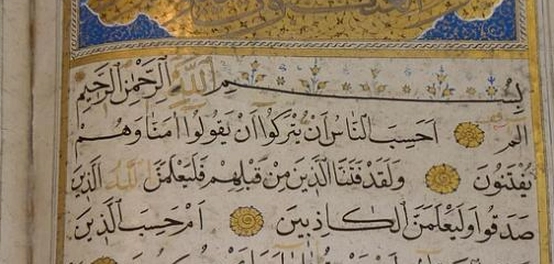 بِسْمِ اللَّهِ الرَّحْمَٰنِ الرَّحِيمِ
الم أَحَسِبَ النَّاسُ أَنْ يُتْرَكُوا أَنْ يَقُولُوا آمَنَّا وَهُمْ لَا
يُفْتَنُونَ وَلَقَدْ فَتَنَّا الَّذِينَ مِنْ قَبْلِهِمْ فَلَيَعْلَمَنَّ اللَّهُ الَّذِينَ
صَدَقُوا وَلَيَعْلَمَنَّ الْكَاذِبِينَ أَمْ حَسِبَ الَّذِينَ